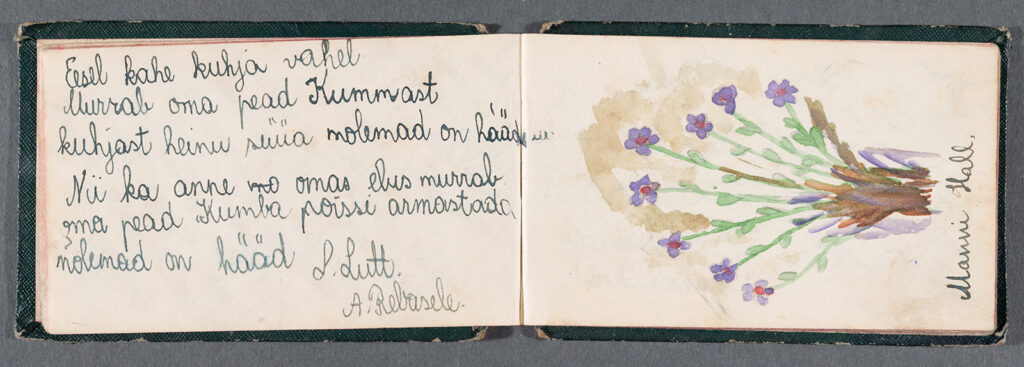 Eesel kahe kuhja vahel
Murrab oma pead Kummast
kuhjast heinu süüa molemad on hääd
Nii ka anne omas elus murrab
oma pead Kumba poissi armastada
mõlemad on hääd L. Lutt.
A. Rebasele.
Manni Hall.